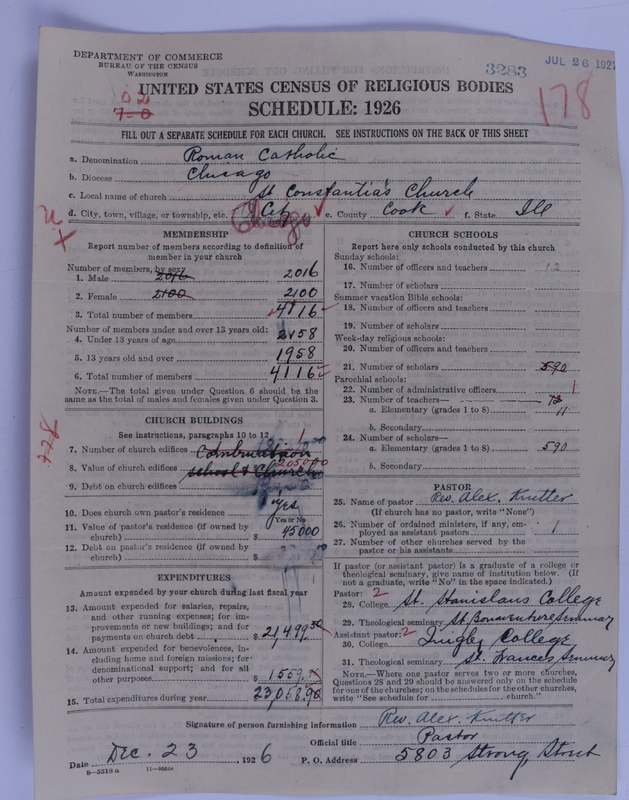 DEPARTMENT OF COMMERCE
BUREAU OF THE CENSUS
WASHINGTON
3283
JUL 26 1927
UNITED STATES CENSUS OF RELIGIOUS BODIES
SCHEDULE: 1926
02
7-0
178
FILL OUT A SEPARATE SCHEDULE FOR EACH CHURCH. SEE INSTRUCTIONS ON THE BACK OF THIS SHEET
a. Denomination Roman Catholic
b. Diocese Chicago
c. Local name of church St Constantia's Church
d. City, town, village, or township, etc. City Chicago e. County Cook f. State Ill
MEMBERSHIP
Report number of members according to definition of
member in your church
Number of members, by sex:
1. Male 2016 2016
2. Female 2100 2100
3. Total number of members 4116
Number of members under and over 13 years old:
4. Under 13 years of age 2158
5. 13 years old and over 1958
6. Total number of members 4116
NOTE.—The total given under Question 6 should be the
same as the total of males and females given under Question 3.
CHURCH BUILDINGS
See instructions, paragraphs 10 to 12
7. Number of church edifices Combination 1
8. Value of church edifices school & Church 205000
9. Debt on church edifices
10. Does church own pastor's residence yes
Yes or No
11. Value of pastor's residence (if owned by
church) $ 45000
12. Debt on pastor's residence (if owned by
church) $
EXPENDITURES
Amount expended by your church during last fiscal year
13. Amount expended for salaries, repairs,
and other running expenses; for im-
provements or new buildings; and for
payments on church debt $ 21,499.50
14. Amount expended for benevolences, in-
cluding home and foreign missions; for
denominational support; and for all
other purposes $ 1559.
15. Total expenditures during year 23,058.90
CHURCH SCHOOLS
Report here only schools conducted by this church
Sunday schools:
16. Number of officers and teachers 12
17. Number of scholars
Summer vacation Bible schools:
18. Number of officers and teachers
19. Number of scholars
Week-day religious schools:
20. Number of officers and teachers
21. Number of scholars 590
Parochial schools:
22. Number of administrative officers 1
23. Number of teachers— 12
a. Elementary (grades 1 to 8) 11
b. Secondary
24. Number of scholars—
a. Elementary (grades 1 to 8) 590
b. Secondary
PASTOR
25. Name of pastor Rev. Alex. Knitter
(If church has no pastor, write "None")
26. Number of ordained ministers, if any, em-
ployed as assistant pastors 1
27. Number of other churches served by the
pastor or his assistants
If pastor (or assistant pastor) is a graduate of a college or
theological seminary, give name of institution below. (If
not a graduate, write "No" in the space indicated.)
Pastor: 2
28. College St. Stanislaus College
29. Theological seminary St Bonaventure Seminary
Assistant pastor: 2
30. College Quigley College
31. Theological seminary St. Frances Seminary
NOTE.—Where one pastor serves two or more churches,
Questions 28 and 29 should be answered only on the schedule
for one of the churches; on the schedules for the other churches,
write "See schedule for church."
Signature of person furnishing information Rev. Alex. Knitter
Official title Pastor
Date Dec. 23, 1926 P. O. Address 5803 Strong Street
8-5518a